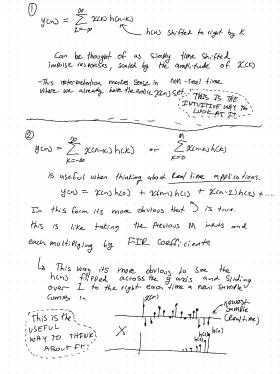 ①
y(n) = ∞ Σ k=-∞ x(k) h(n-k)
h(n) shifted to right by k
Can be thought of as simply time shifted
impulse responses, scaled by the amplitude of x(k)
- This interpretation makes sense in non-real time
where we already have the entire x(n) set.
THIS IS THE
INTUITIVE WAY TO
LOOK AT IT
②
y(n) = ∞ Σ k=-∞ x(n-k) h(k) or M Σ k=0 x(n-k) h(k)
is useful when thinking about Real time applications.
y(n) = x(n) h(0) + x(n-1) h(1) + x(n-2) h(2) + ...
In this form its more obvious that is true.
this is like taking the previous M inputs and
each multiplying by FIR coefficients
↳ This way its more obvious to see the
h(n) flipped across the y axis and sliding
over 1 to the right each time a new sample
comes in
x(n)
newest
sample
(Real time)
This is the
USEFUL
WAY TO THINK
ABOUT IT
X
h(0)
h(1)